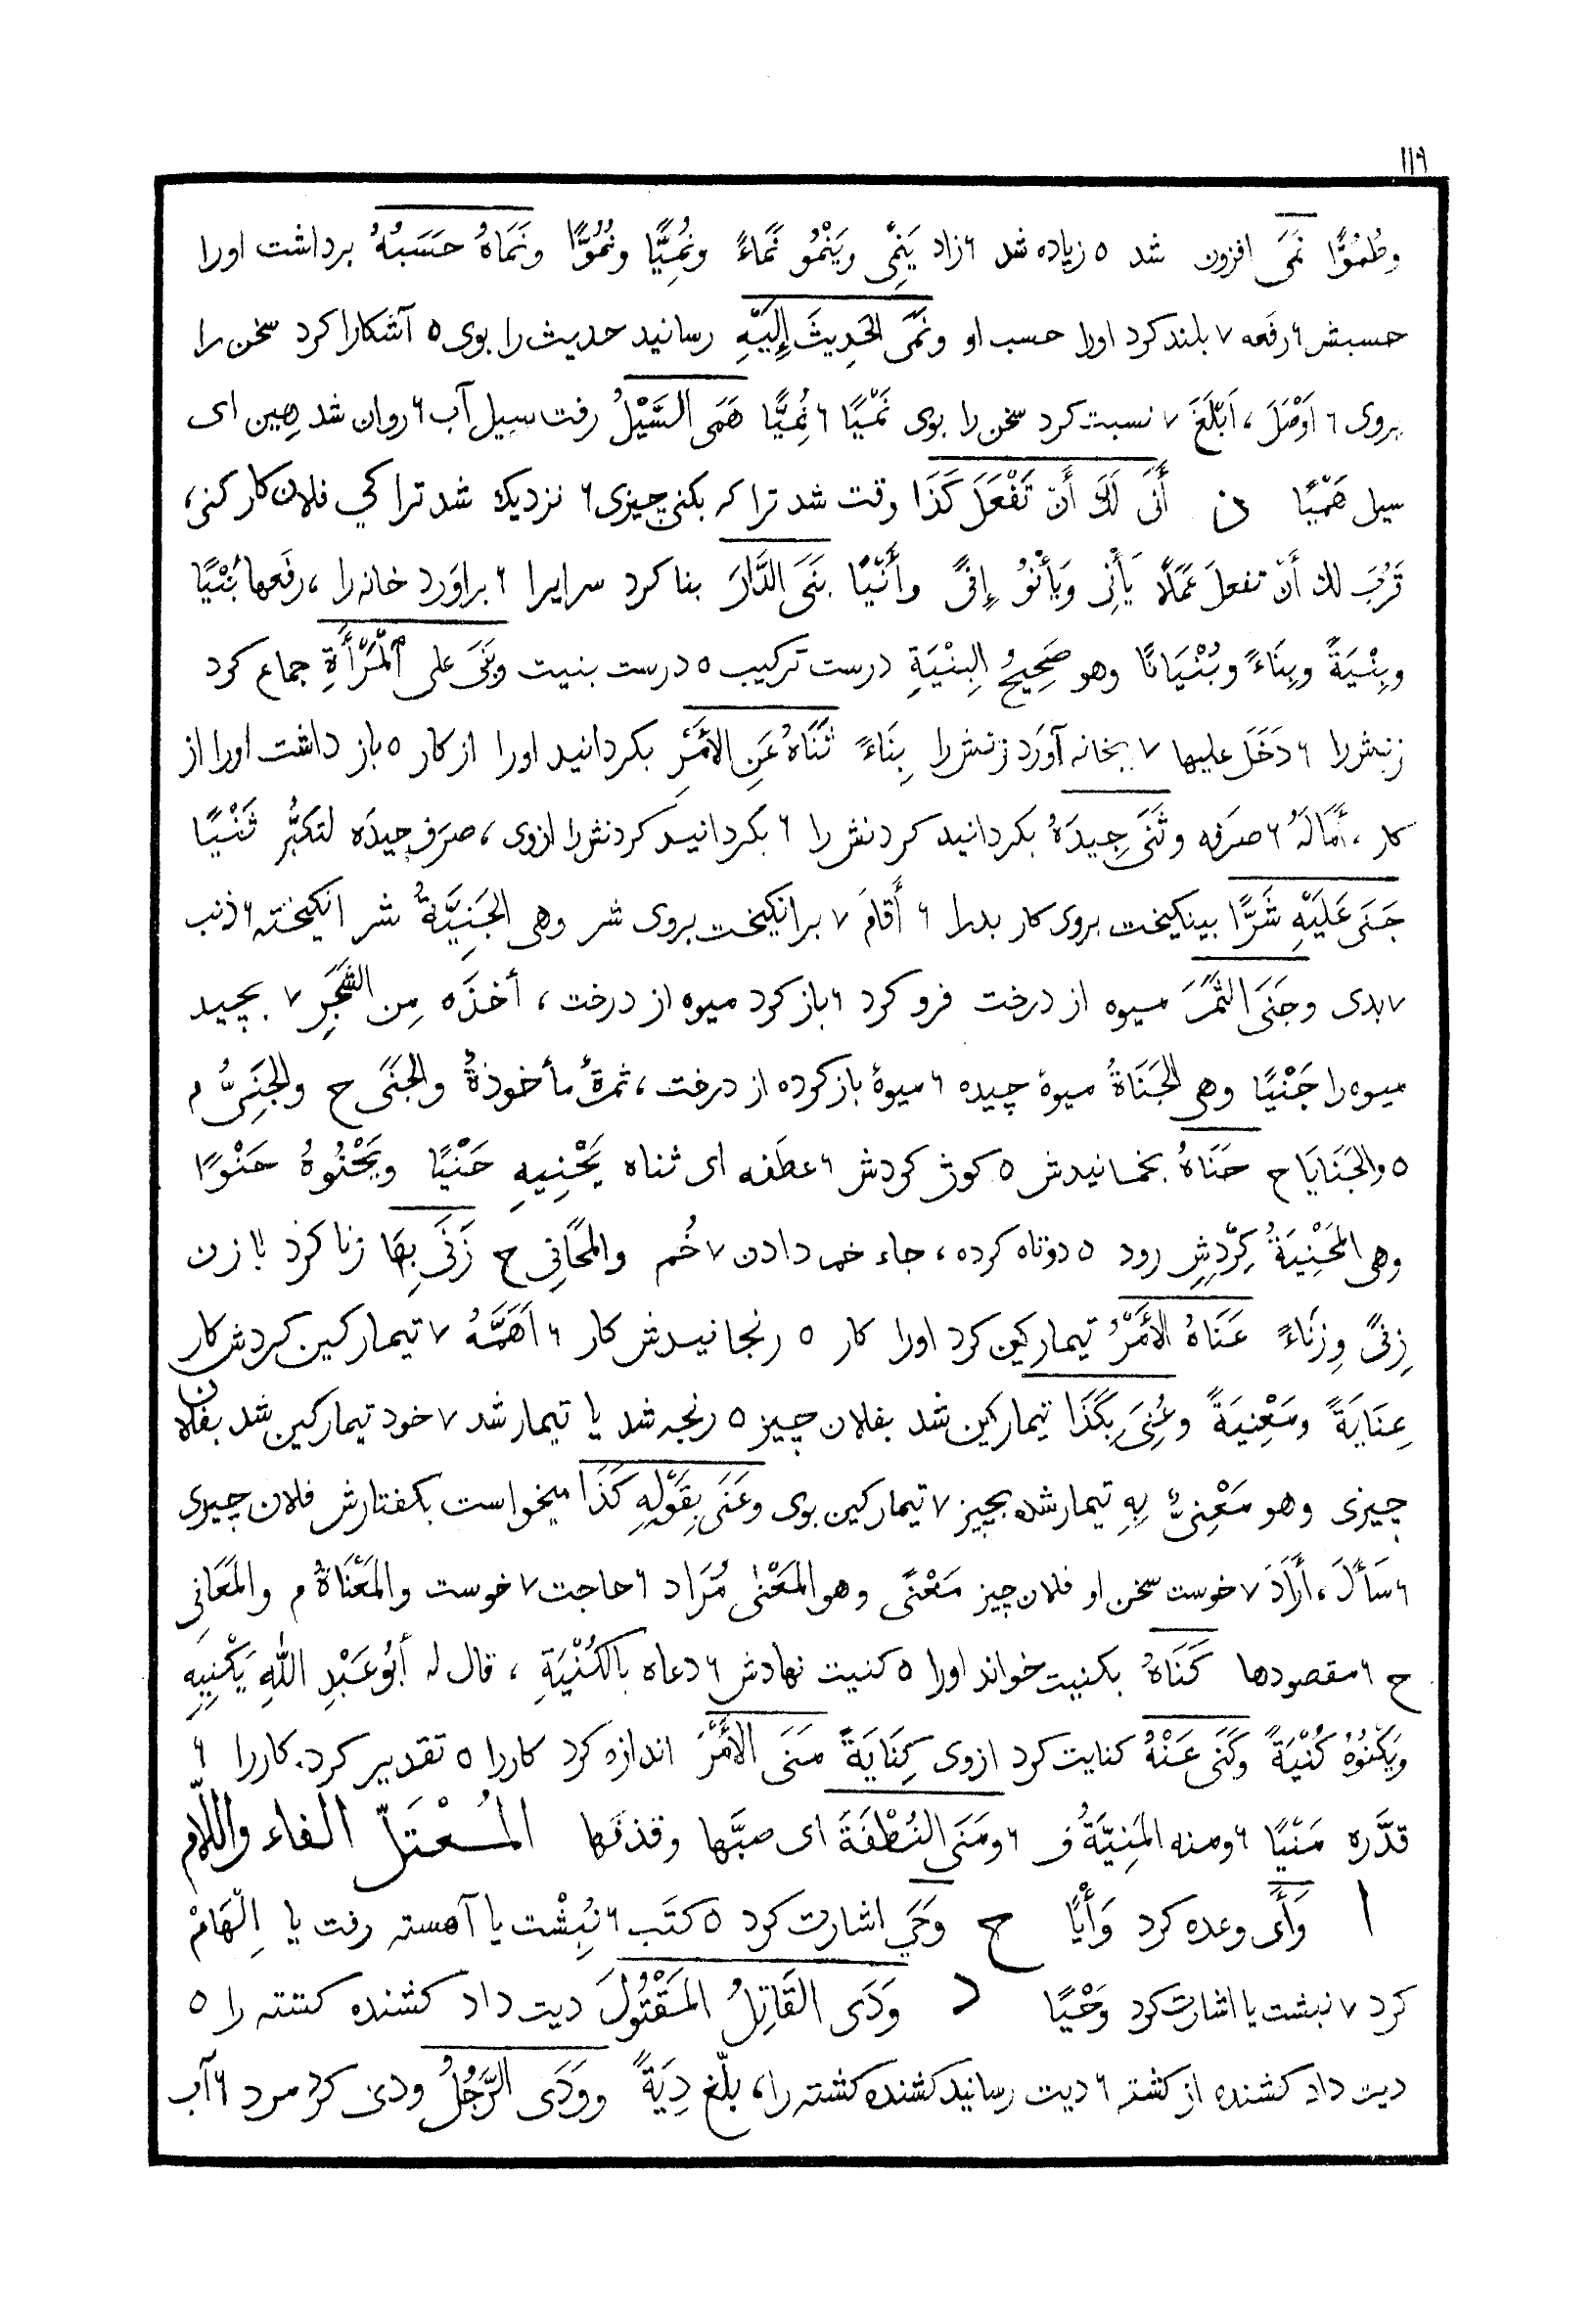 ١١٦
وطُمُوًّا نَمَى افزون شد ٥ زیاده شد ٦ زاد يَنْمِي ويَنْمُو نَمَاءً ونُمِيًّا ونُمُوًّا ونَمَاهُ حَسَبُهُ برداشت اورا
حسبش ٦ رفَعه ٧ بلند کرد اورا حسب او ونَمَى الحَدِيثَ إِلَيْهِ رسانید حدیث را بوی ٥ آشکارا کرد سخن را
بروی ٦ اَوْصَلَ ، اَبْلَغَ ٧ نسبت کرد سخن را بوی نَمْيًا ٦ نُمِيًّا هَمَى السَّيْلُ رفت سیل آب ٦ روان شد هِین ای
سیل هَمْيًا ن أَنَى لَكَ أَنْ تَفْعَلَ كَذَا وقت شد ترا که بکنی چیزی ٦ نزدیك شد ترا کی فلان کار کنی ،
قَرُبَ لك أَنْ تفعلَ عَمَلًا يَأْنِى وَيَأْنُو إِنًى وأَنْيًا بَنَى الدَّارَ بنا کرد سرایرا ٦ براوَرد خانه را ، رفَعها بَنْيًا
وبِنْيَةً وبِنَاءً وبُنْيَانًا وهو صَحِيحُ البِنْيَةِ درست ترکیب ٥ درست بنیت وبَنَى على المَرْأَةِ جماع کرد
زنش را ٦ دَخَلَ عليها ٧ بخانه آوَرد زنش را بِنَاءً ثَنَاهُ عَنِ الأَمْرِ بکردانید اورا از کار ٥ باز داشت اورا از
کار ، أَمَالَهُ ٦ صرَفه وثَنَى جِيدَهُ بکردانید کردنش را ٦ بکردانید کردنش را ازوی ، صرَف جيدَه لتكبُّر ثَنْيًا
جَنَى عَلَيْهِ شَرًّا بینکیخت بروی کار بدرا ٦ أَقامَ ٧ برانکیخت بروی شر وهى الجَنِيَّةُ شر انکیخته ٦ ذنب
٧ بدی وجَنَى الثَّمَرَ میوه از درخت فرو کرد ٦ باز کرد میوه از درخت ، أخذَه مِن الشَّجَرِ ٧ بچید
میوه را جَنْيًا وهى الجَنَاةُ میوۀ چیده ٦ میوۀ باز کرده از درخت ، ثمرةٌ مأخوذةٌ والجَنَى ح والجَنِىُّ م
٥ والجَنَايَا ح حَنَاهُ بخمانیدش ٥ کوژ کردش ٦ عطَفه ای ثناه يَحْنِيهِ حَنْيًا ويَحْنُوهُ حَنْوًا
وهى المَحْنِيَةُ کِرْدِشِ رود ٥ دوتاه کرده ، جاء خم دادن ٧ خُم والمَحَانِى ح زَنَى بِهَا زنا کرد با زن
زِنًى وزِنَاءً عَنَاهُ الأَمْرُ تیمارکین کرد اورا کار ٥ رنجانیدش کار ٦ اَهَمَّهُ ٧ تیمارکین کردش کار
عِنَايَةً ومَعْنِيَةً وعُنِىَ بِكَذَا تیمارکین شد بفلان چیز ٥ رنجه شد یا تیمار شد ٧ خود تیمارکین شد بفلان
چیزی وهو مَعْنِىٌّ بِهِ تیمار شده بچیز ٧ تیمارکین بوی وعَنَى بِقَوْلِهِ كَذَا میخواست بکفتارش فلان چیزی
٦ سَأَلَ ، أَرَادَ ٧ خوست سخن او فلان چیز مَعْنًى وهو المَعْنَى مُرَاد ٦ حاجت ٧ خوست والمَعْنَاةُ م والمَعَانِى
ح ٦ مقصودها كَنَاهُ بکنیت خواند اورا ٥ کنیت نهادش ٦ دعاه بالكُنْيَةِ ، قال له أَبُو عَبْدِ اللهِ يَكْنِيهِ
ويَكْنُوهُ كُنْيَةً وكَنَى عَنْهُ کنایت کرد ازوی كِنَايَةً مَنَى الأَمْرَ اندازه کرد کاررا ٥ تقدیر کرد کاررا ٦
قدَّره مَنْيًا ٦ ومنه المَنِيَّةُ ف ٦ ومَنَى النُّطْفَةَ ای صبَّها وقذفها المُعْتَلّ الفاء واللّام
ا وَأَى وعده کرد وَأْيًا ح وَحَى اشارت کرد ٥ کتَب ٦ نِبِشْت یا آهسته رفت یا اِلْهَامْ
کرد ٧ نبشت یا اشارت کرد وَحْيًا د وَدَى القَاتِلُ المَقْتُولَ دیت داد کشنده کشته را ٥
دیت داد کشنده از کشته ٦ دیت رسانید کشنده کشته را ، بلّغ دِيَةً ووَدَى الرَّجُلُ ودی کرد مرد ٦ آب